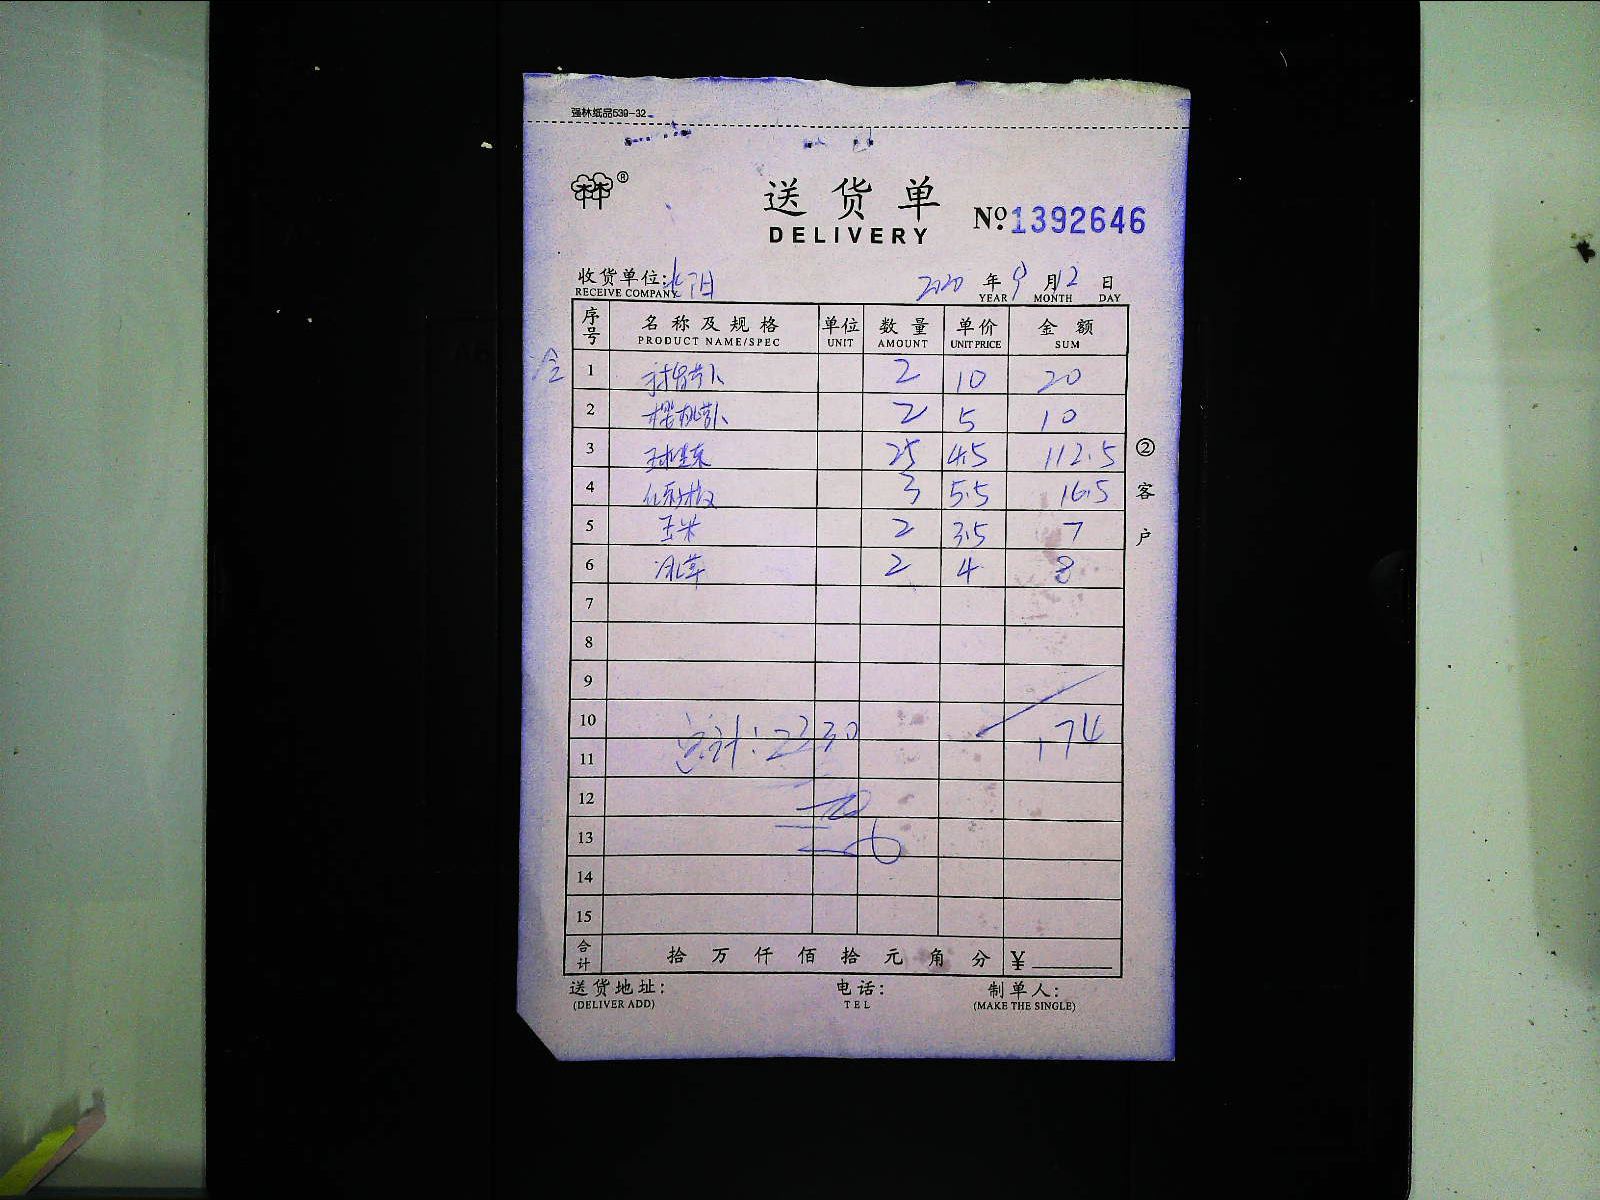 强林纸品539-32
®
送货单
DELIVERY
№1392646
收货单位:
RECEIVE COMPANY
2020 年 9 月 12 日
YEAR MONTH DAY
序号 名称及规格 单位 数量 单价 金额
PRODUCT NAME/SPEC UNIT AMOUNT UNIT PRICE SUM
1 2 10 20
2 樱桃萝卜 2 5 10
3 球生菜 25 4.5 112.5
4 3 5.5 16.5
5 玉米 2 3.5 7
6 冰草 2 4 8
7
8
9
10 174
总计:2330
11
12
13
14
15
合计 拾 万 仟 佰 拾 元 角 分 ¥
② 客户
送货地址: 电话: 制单人:
(DELIVER ADD) TEL (MAKE THE SINGLE)